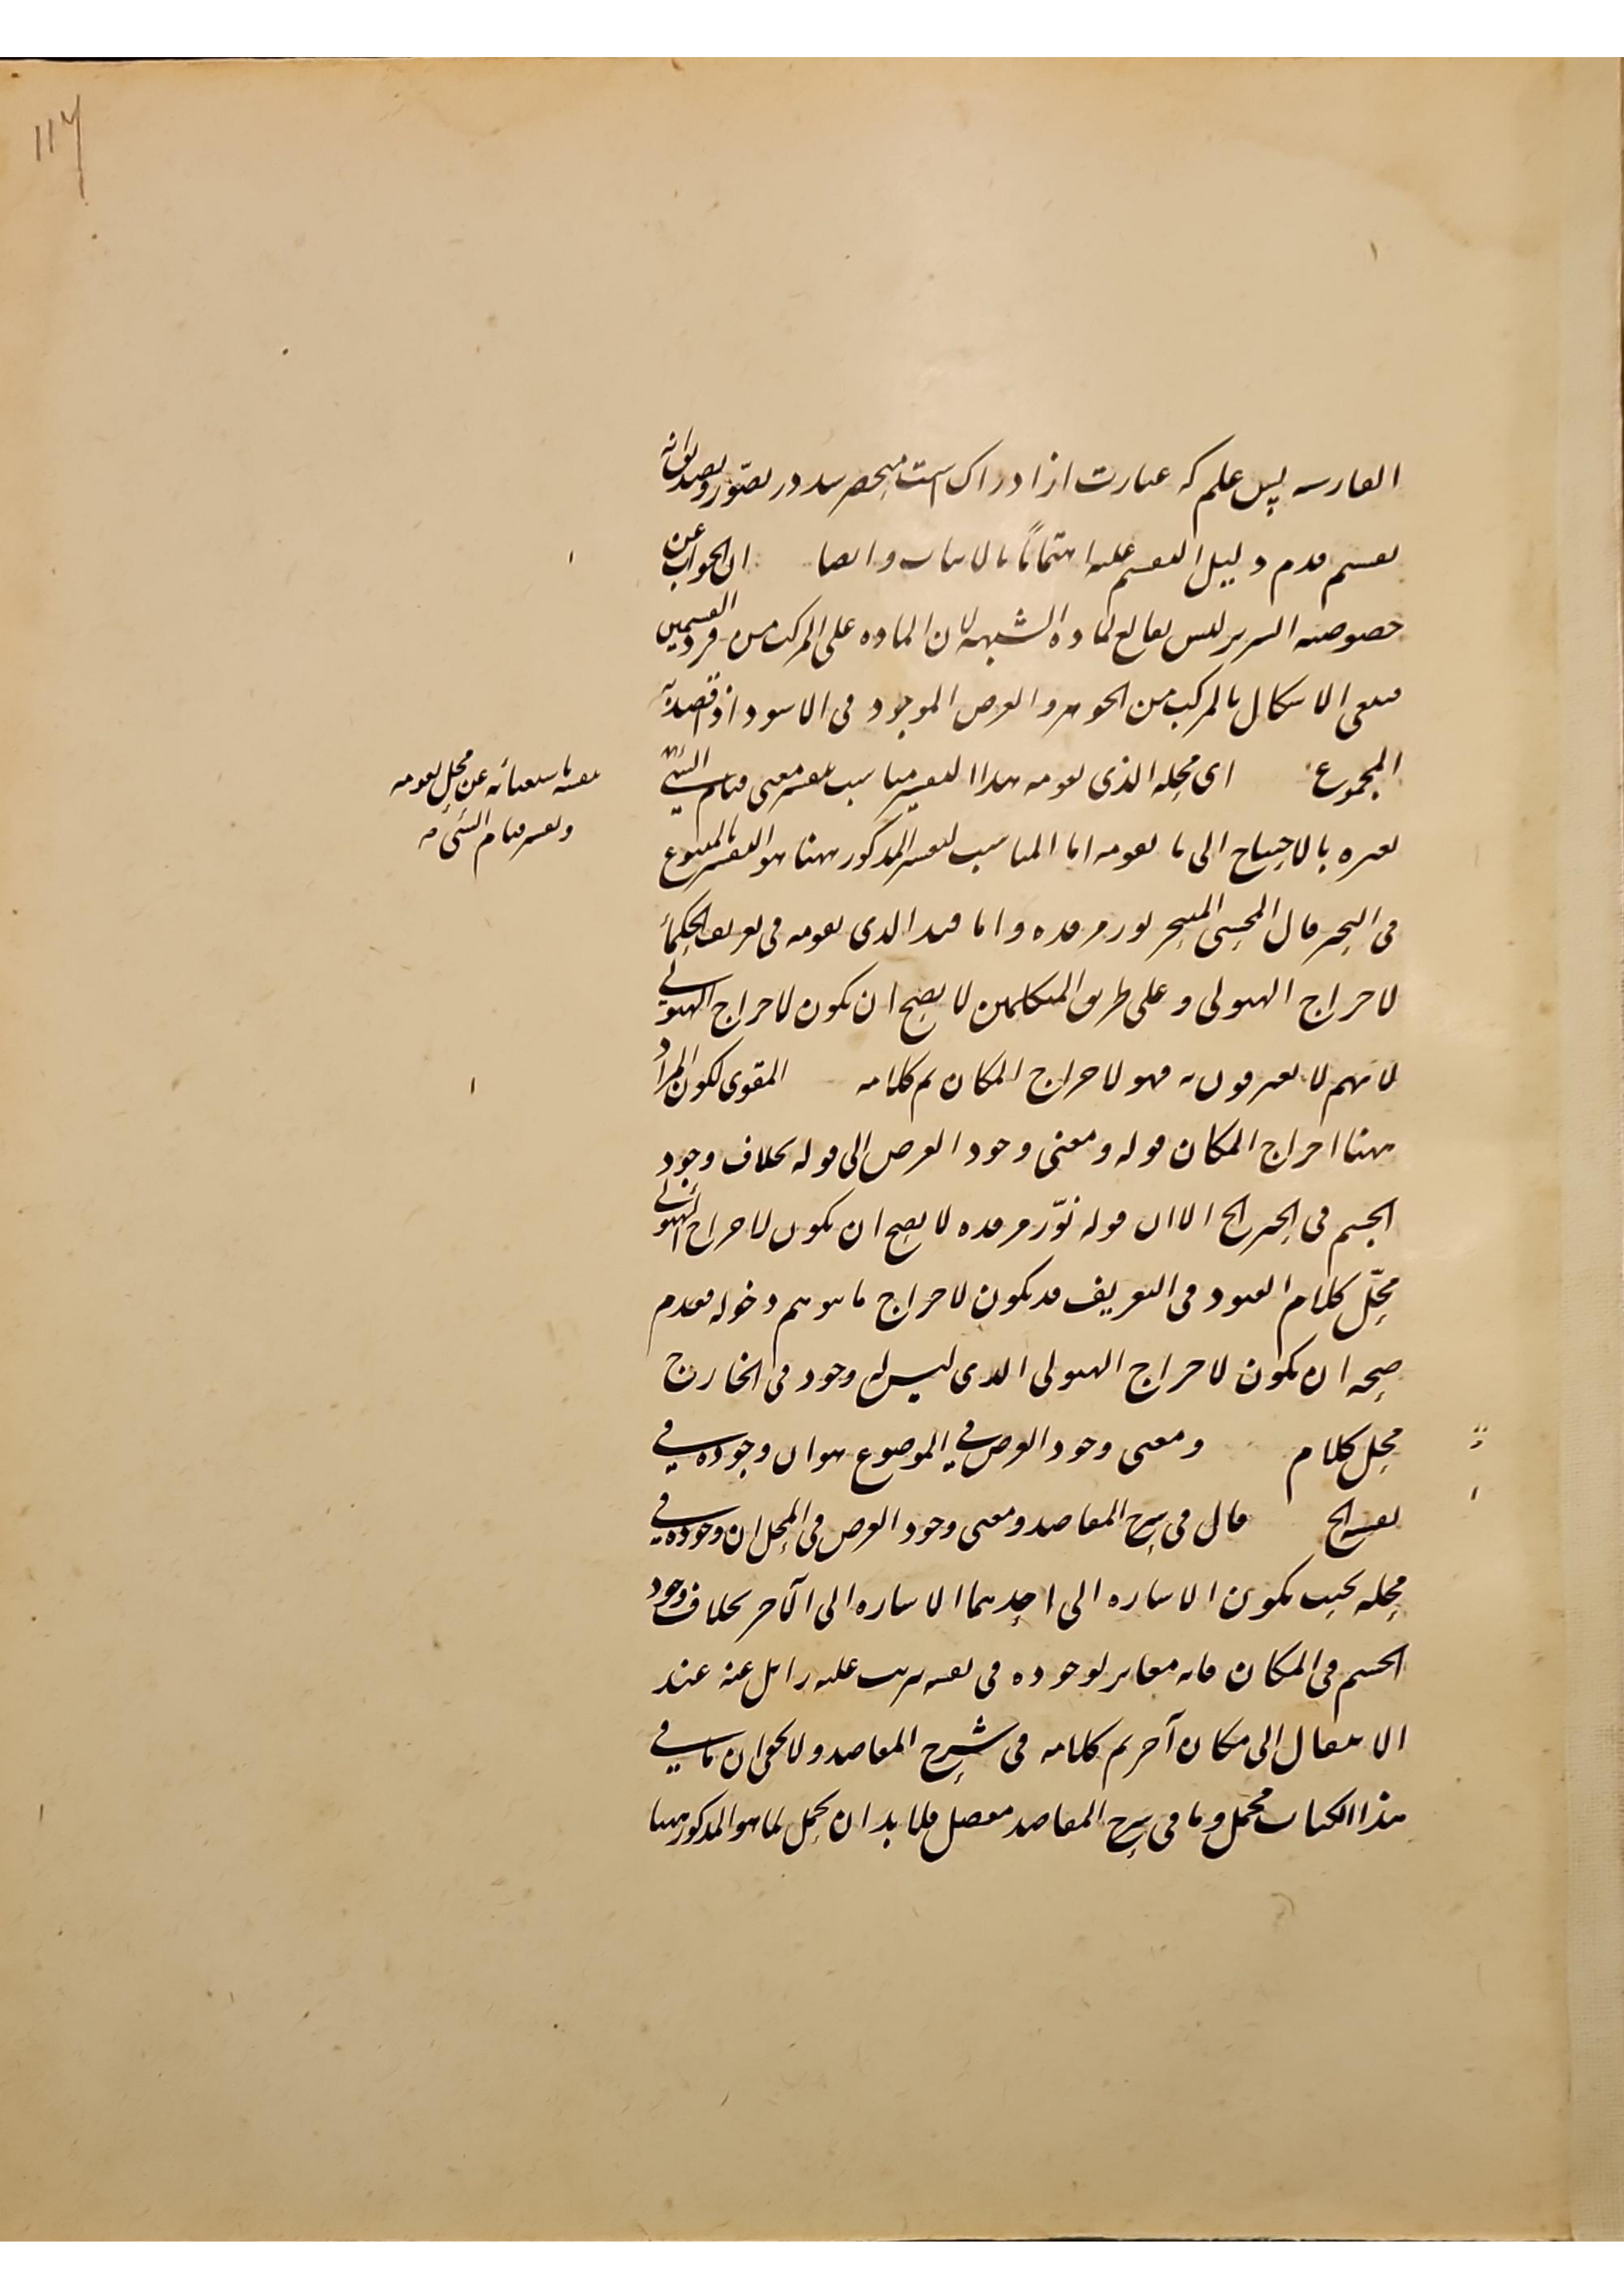 الفارسيه پس علم که عبارت از ادراک است منحصر شد در تصور و تصديق انه
تقسيم قدم دليل التقسيم عليه اهتماما بالاثبات وايضا ان الجواب عن
خصوصيه السرير ليس بقالع لماده الشبهه لان الماده على المركب من فردى القسمين
فبقى الاشكال بالمركب من الجوهر والعرض الموجود فى الاسود اذا قصد به
المجموع اى محله الذى يقومه هذا التفسير يناسب تفسير معنى قيام الشئ
بغيره بالاحتياج الى ما يقومه اما المناسب للتفسير المذكور ههنا هو التفسير بالمتبوع
فى التحيز قال المحشى المتبحر نور مرقده واما قيد الذى يقومه فى تعريف الحكماء
لاخراج الهيولى وعلى طريق المتكلمين لا يصح ان يكون لاخراج الهيولى
لانهم لا يعترفون به فهو لاخراج المكان تم كلامه المقوى لكون المراد
ههنا اخراج المكان قوله ومعنى وجود العرض الى قوله بخلاف وجود
الجسم فى الحيز الخ الا ان قوله نوّر مرقده لا يصح ان يكون لاخراج الهيولى
محلّ كلام القيود فى التعريف قد يكون لاخراج ما يوهم دخوله فعدم
صحه ان يكون لاخراج الهيولى الذى ليس له وجود فى الخارج
محل كلام ومعنى وجود العرض فى الموضوع هو ان وجوده فى
نفسه الخ قال فى شرح المقاصد ومعنى وجود العرض فى المحل ان وجوده فى
محله بحيث يكون الاشاره الى احدهما الاشاره الى الآخر بخلاف وجود
الجسم فى المكان فانه مغاير لوجوده فى نفسه مرتب عليه زائل عنه عند
الانتقال الى مكان آخر تم كلامه فى شرح المقاصد ولا يخفى ان ما فى
هذا الكتاب مجمل وما فى شرح المقاصد مفصل فلا بد ان يحمل لما هو المذكور ههنا
بتفسيره باستغنائه عن محل يقومه
وتفسير قيام الشئ به